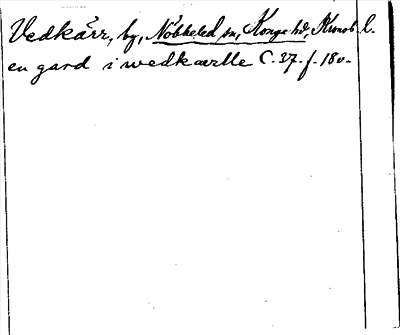 Vedkärr, by, Nöbbeled sn, Konga hd, Kronob. l.
en gard i wedkærlle C. 37. f. 180.